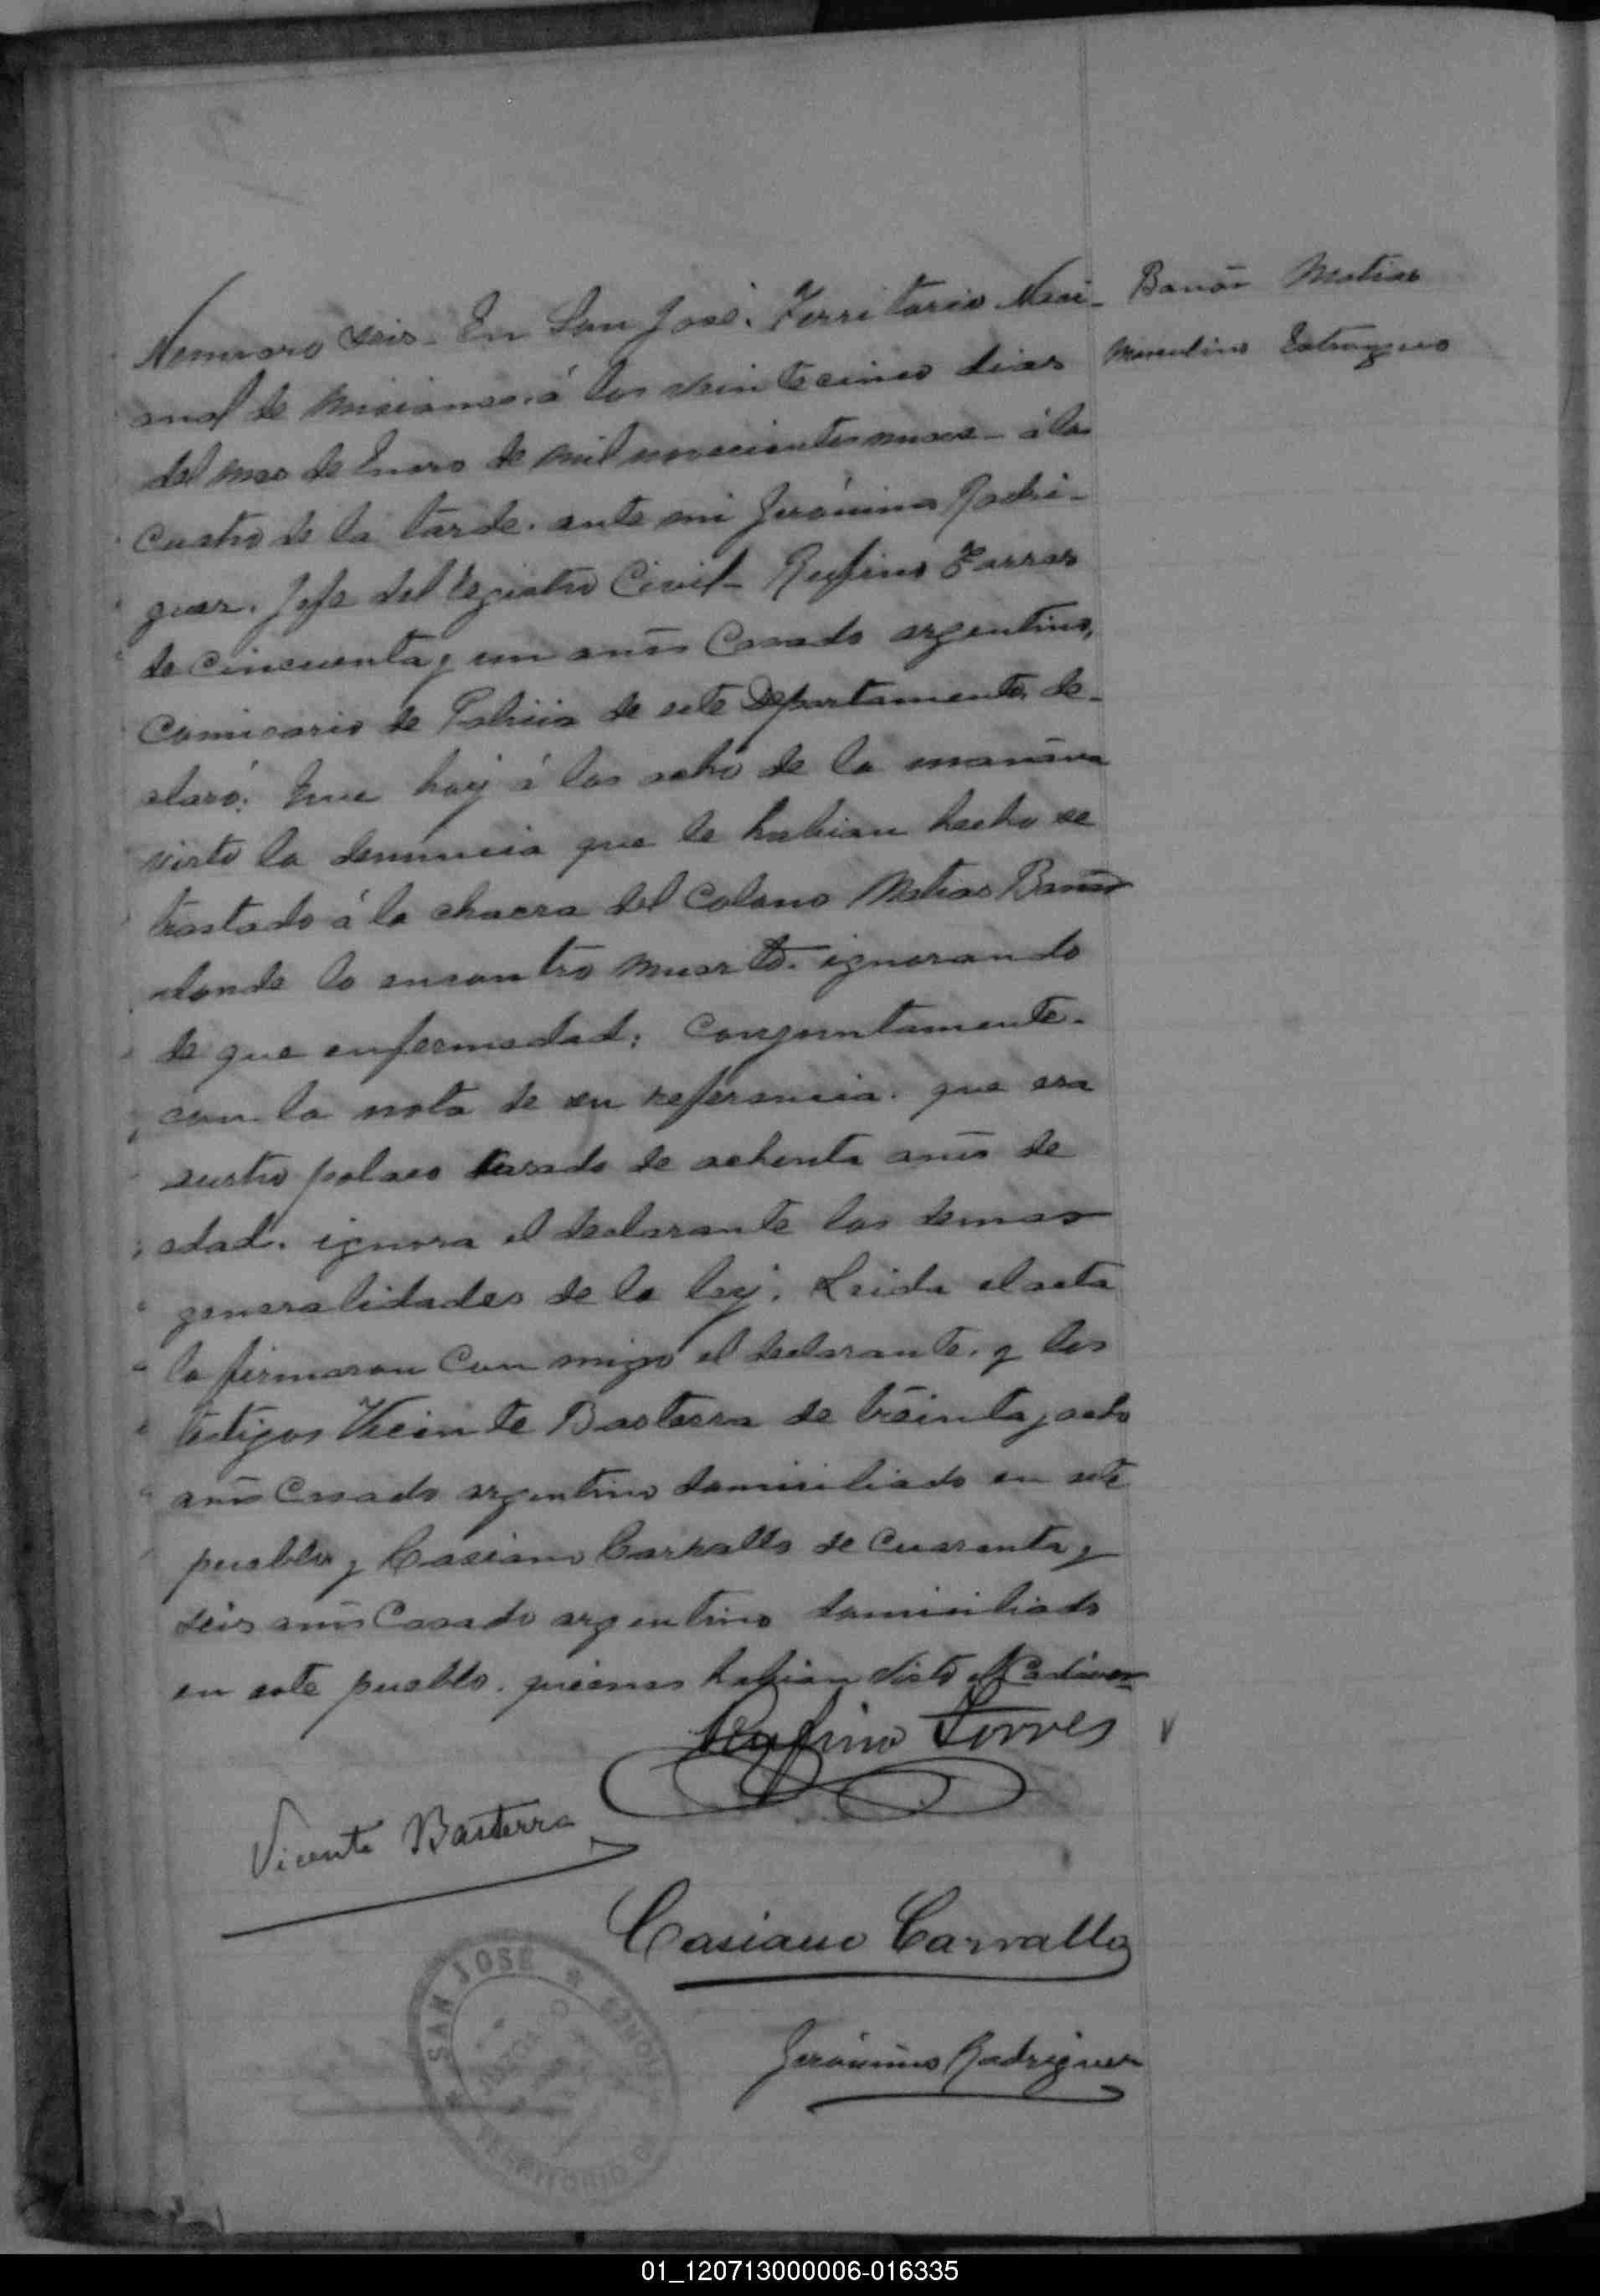 Numero seis. En San José. Territorio Naci-
onal de Misiones. á los veintecinco dias
del mes de Enero de mil novecientos nueve á las
cuatro de la tarde. ante mi Jerónimo Rodri-
guez. Jefe del Registro Civil. Rufino Torres
de cincuenta y un años Casado argentino,
Comisario de Policia de este Departamento, de-
claró: Que hoy á las ocho de la mañana
visto la denuncia que le habian hecho se
trastado á la chacra del Colono Matias
donde lo encontro muerto. ignorando
de que enfermedad; conjuntamente.
con la nota de su referencia. que era
austro polaco casado de ochenta años de
edad. ignora el declarante las demas
generalidades de la ley. Leida el acta
la firmaron con migo el declarante. y los
testigos Vicente Basterra de treinta y ocho
años Casado argentino domiciliado en este
pueblo y Casiano Carvallo de Cuarenta y
seis años Casado argentino domiciliado
en este pueblo. quienes habian visto el Cadaver
Matias
Masculino Estrangero
Rufino Torres
Vicente Basterra
Casiano Carvallo
Jerónimo Rodriguez
SAN JOSE
TERRITORIO
01_120713000006-016335